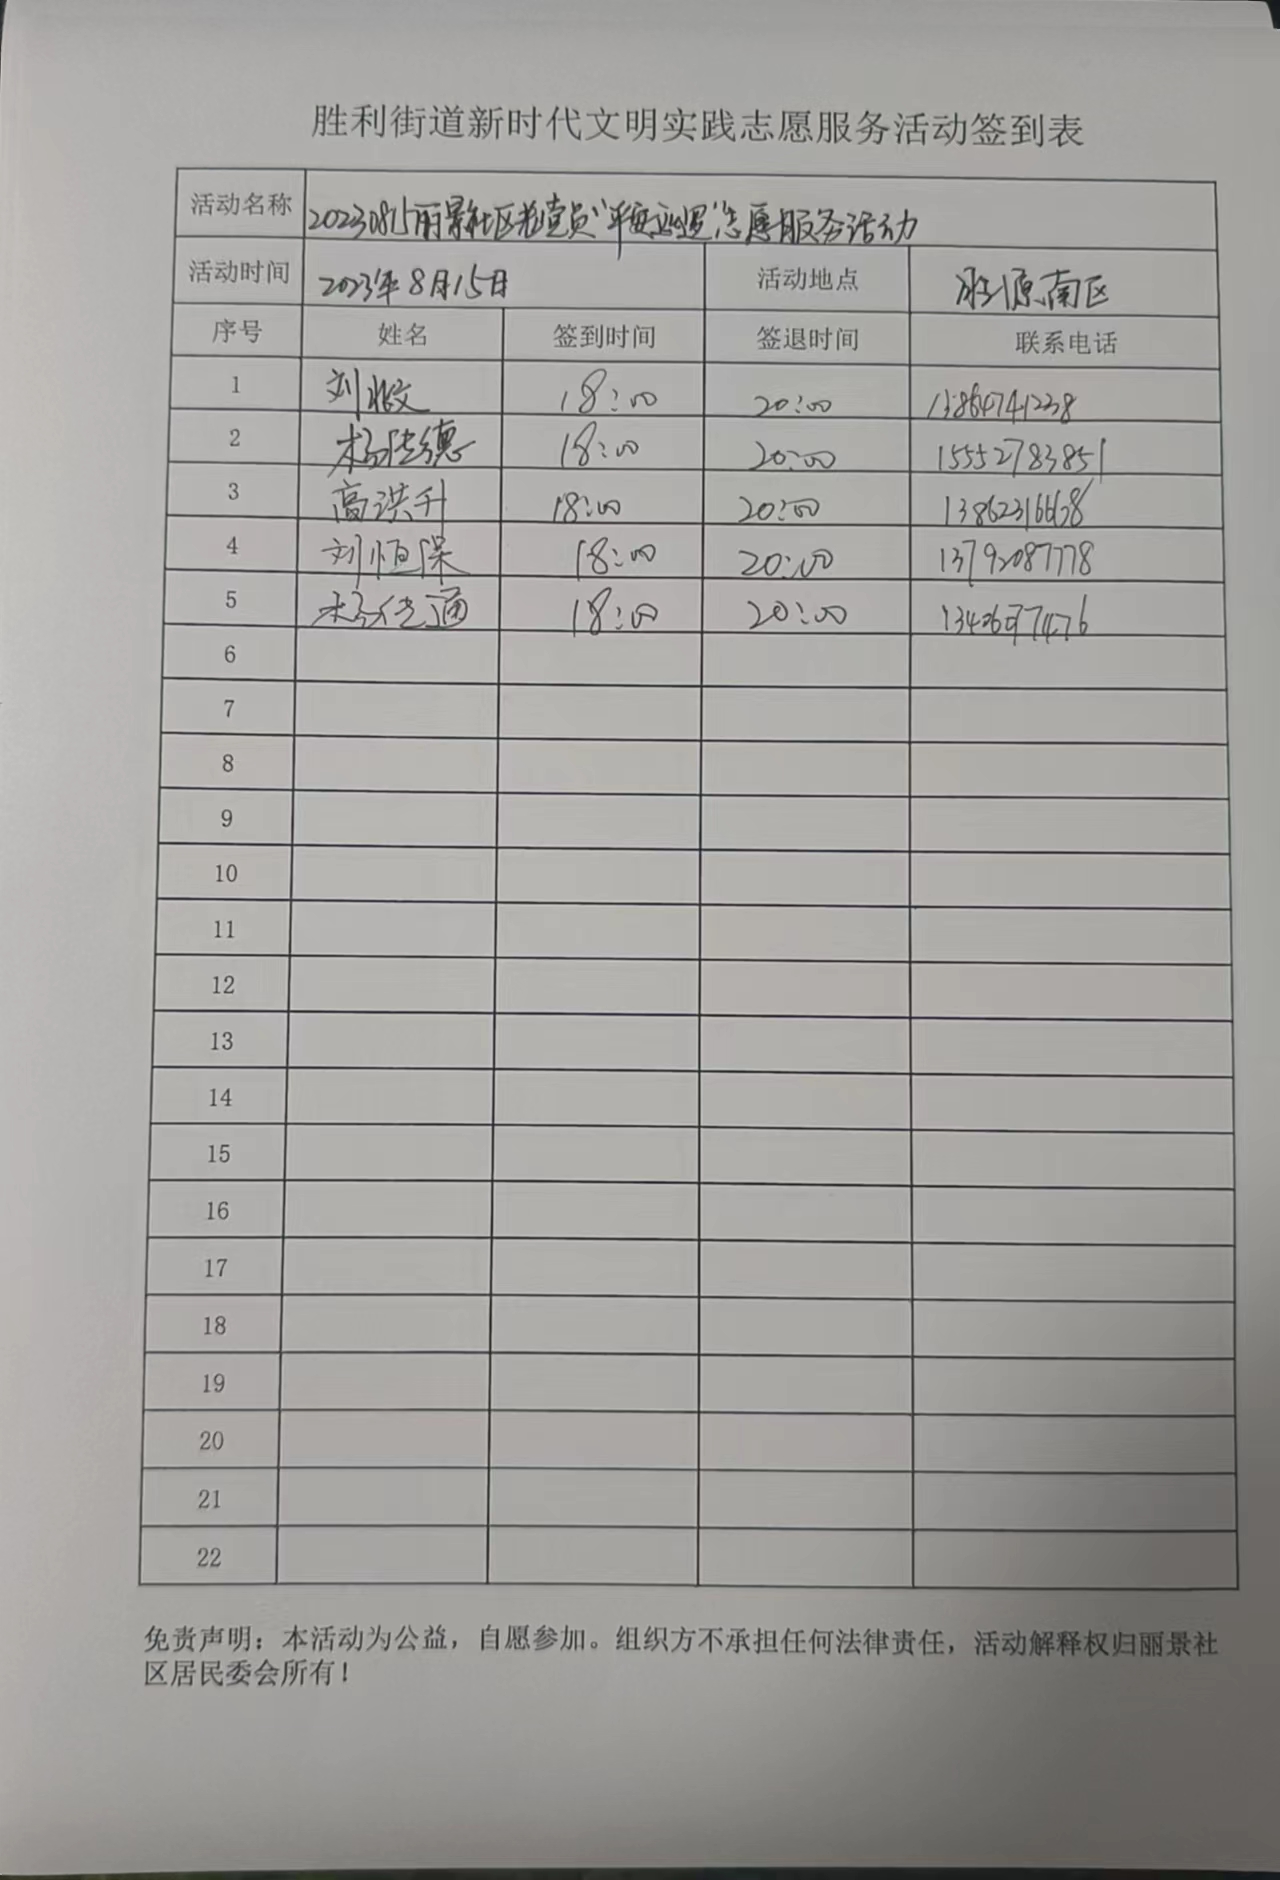 胜利街道新时代文明实践志愿服务活动签到表
活动名称 20230815丽景社区老党员“平安巡逻”志愿服务活动
活动时间 2023年8月15日 活动地点 胜源南区
序号 姓名 签到时间 签退时间 联系电话
1 刘兆文 18:00 20:00 13864741238
2 杨德 18:00 20:00 15552783851
3 高洪升 18:00 20:00
4 刘恒保 18:00 20:00 13792087778
5 杨通 18:00 20:00
6
7
8
9
10
11
12
13
14
15
16
17
18
19
20
21
22
免责声明：本活动为公益，自愿参加。组织方不承担任何法律责任，活动解释权归丽景社
区居民委会所有！